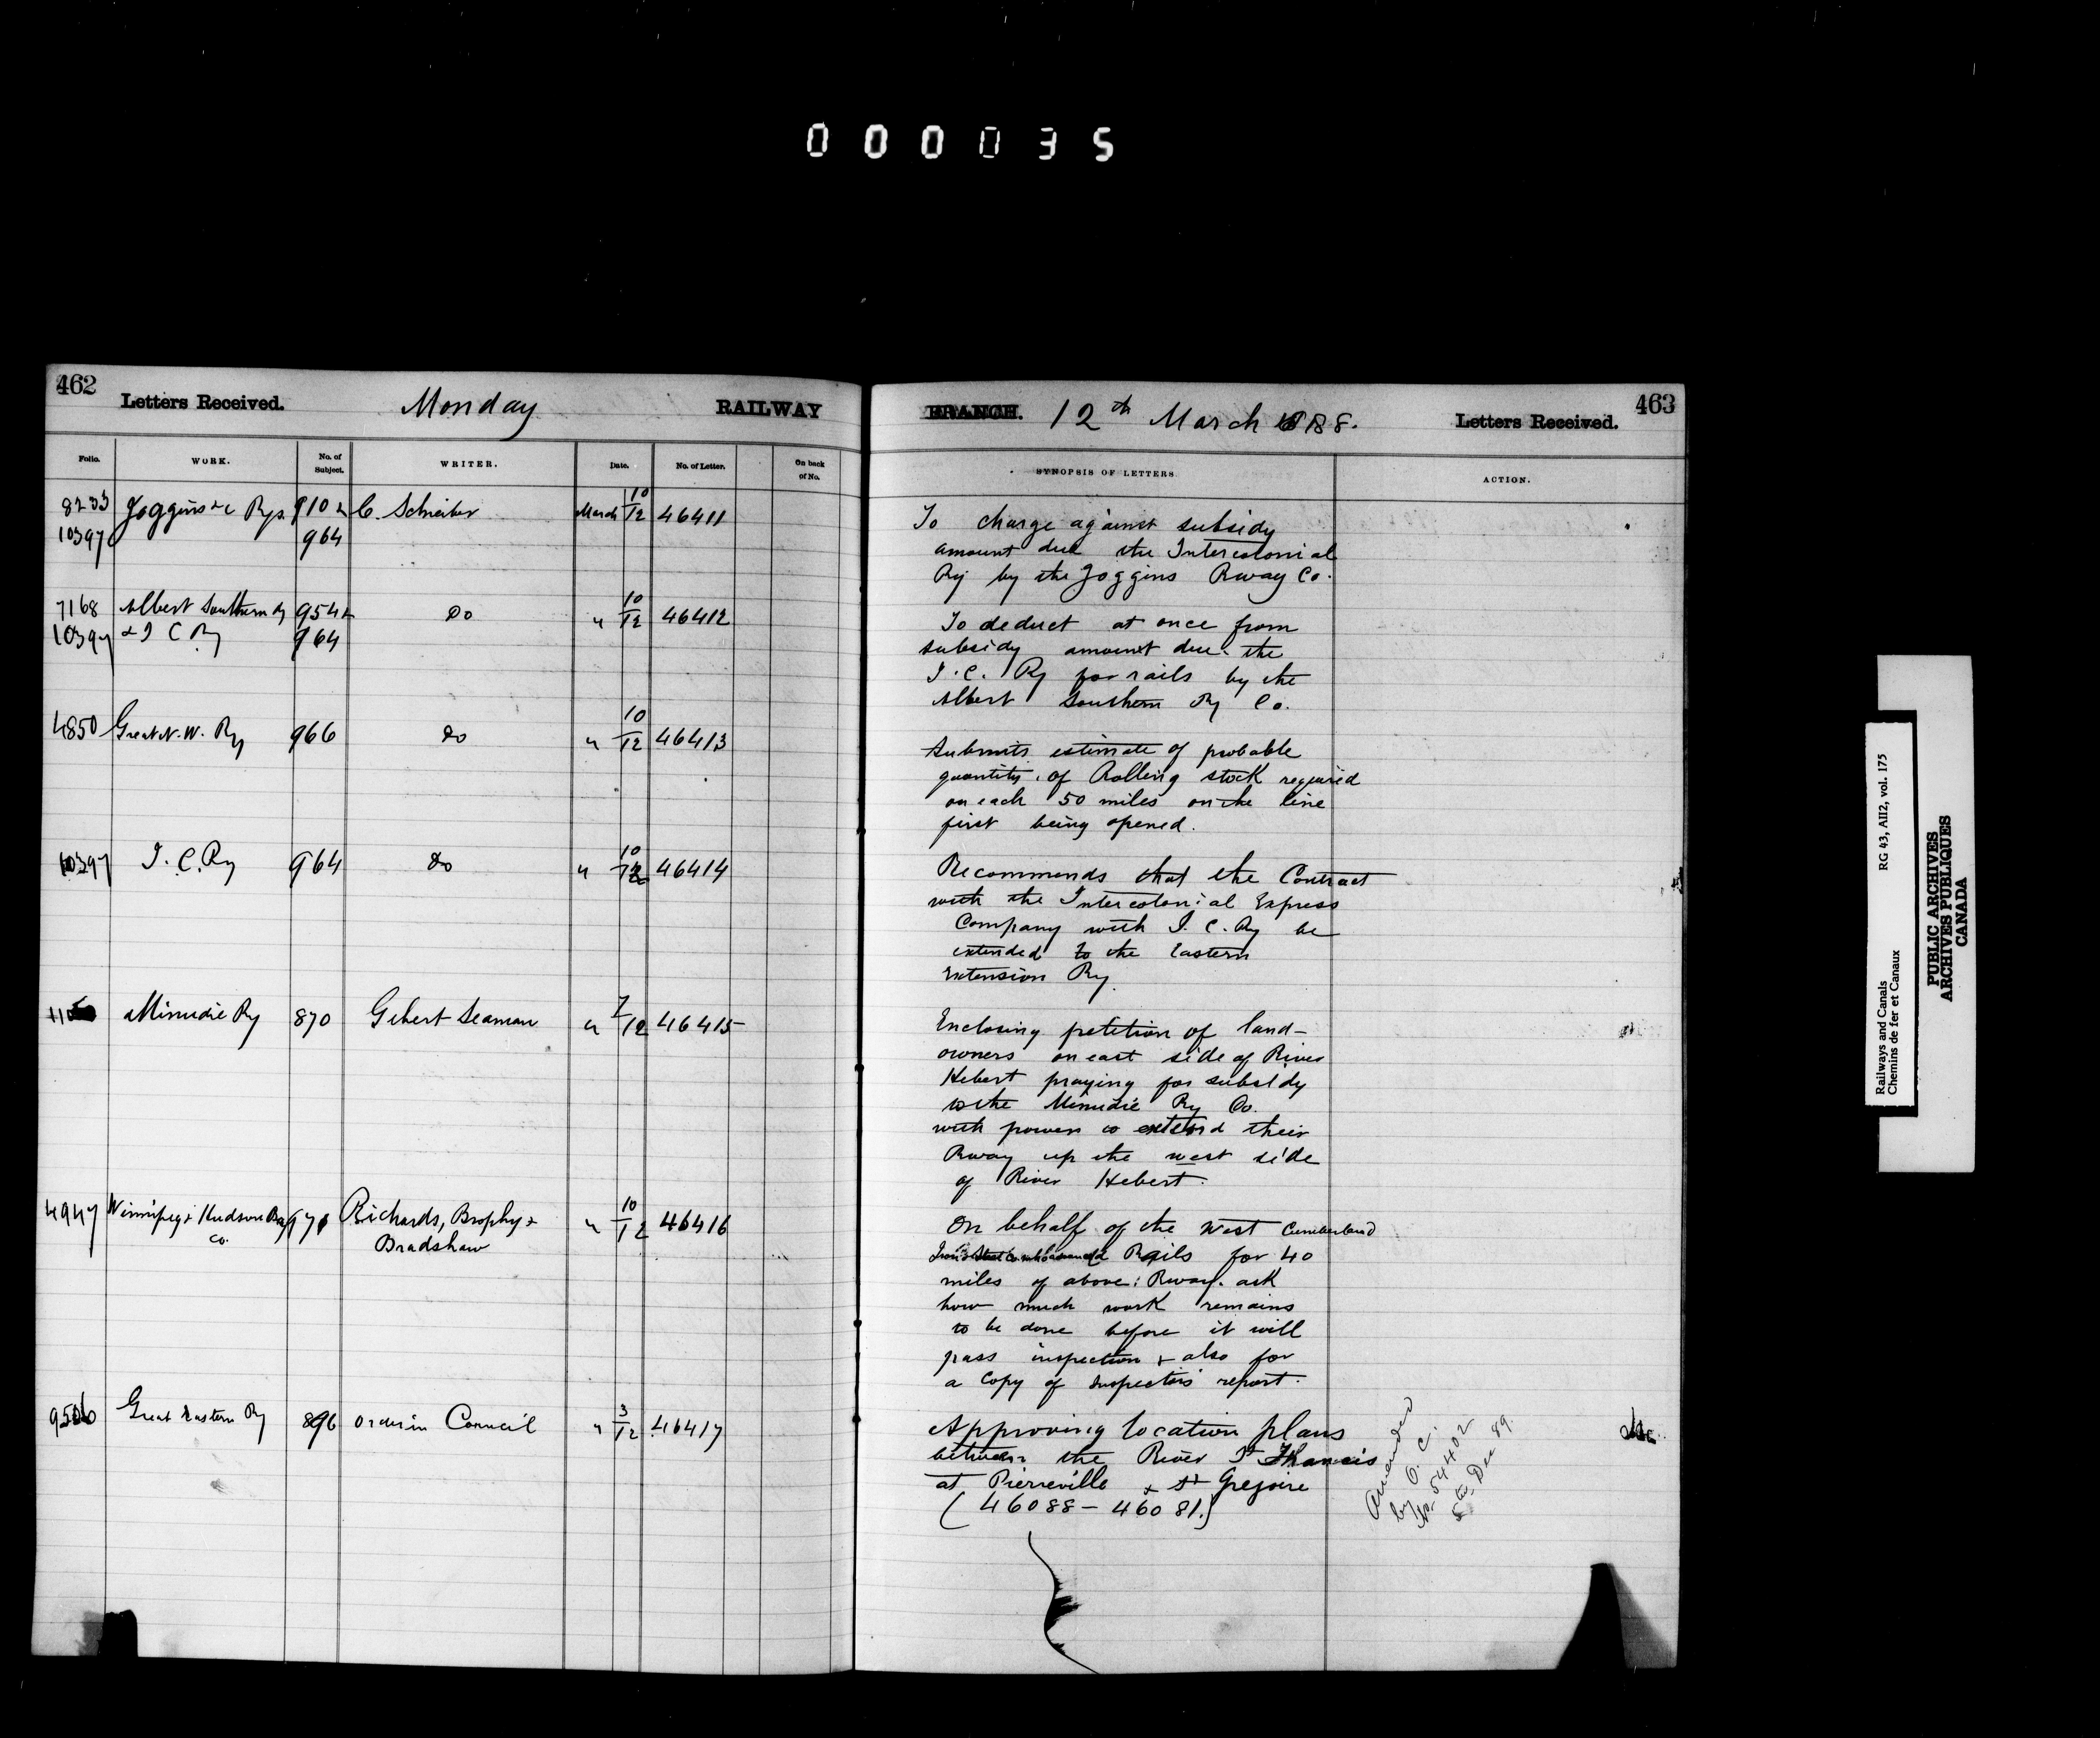 000035
462
Letters Received.
Monday
RAILWAY
Folio.
WORK.
No. of Subject.
WRITER.
Date.
No. of Letter.
On back of No.
8233 Joggins &c Rys 910 & C. Schreiber March 10/12 46411
10397 964
7168 Albert Southern Ry 954 & Do " 10/12 46412
10397 & I C Ry 964
4850 Great N. W. Ry 966 Do " 10/12 46413
10397 I. C. Ry 964 Do " 10/12 46414
Minudie Ry 870 Gilbert Seaman " 7/12 46415
4947 Winnipeg & Hudson Bay Richards, Brophy & " 10/12 46416
Co. Bradshaw
Great Eastern Ry 896 Order in Council " 3/12 46417
BRANCH.
12th March 1888.
Letters Received.
463
SYNOPSIS OF LETTERS
ACTION.
To charge against subsidy
amount due the Intercolonial
Ry by the Joggins Rway Co.
To deduct at once from
subsidy amount due the
I. C. Ry for rails by the
Albert Southern Ry Co.
Submits estimate of probable
quantity of Rolling stock required
on each 50 miles on the line
first being opened.
Recommends that the Contract
with the Intercolonial Express
Company with I. C. Ry be
extended to the Eastern
Extension Ry.
Enclosing petition of land-
owners on east side of River
Hebert praying for subsidy
to the Minudie Ry Co.
with power to extend their
Rway up the west side
of River Hebert.
On behalf of the West Cumberland
Iron & Steel Rails for 40
miles of above: Rway. ask
how much work remains
to be done before it will
pass inspection & also for
a copy of Inspectors report.
Approving location plans
between the River St Francis
at Pierreville & St Gregoire
(46088 - 46081.)
Amended
by O. C.
No. 54402
5th Dec 89.
Railways and Canals RG 43, AII2, vol. 175
Chemins de fer et Canaux
PUBLIC ARCHIVES
ARCHIVES PUBLIQUES
CANADA